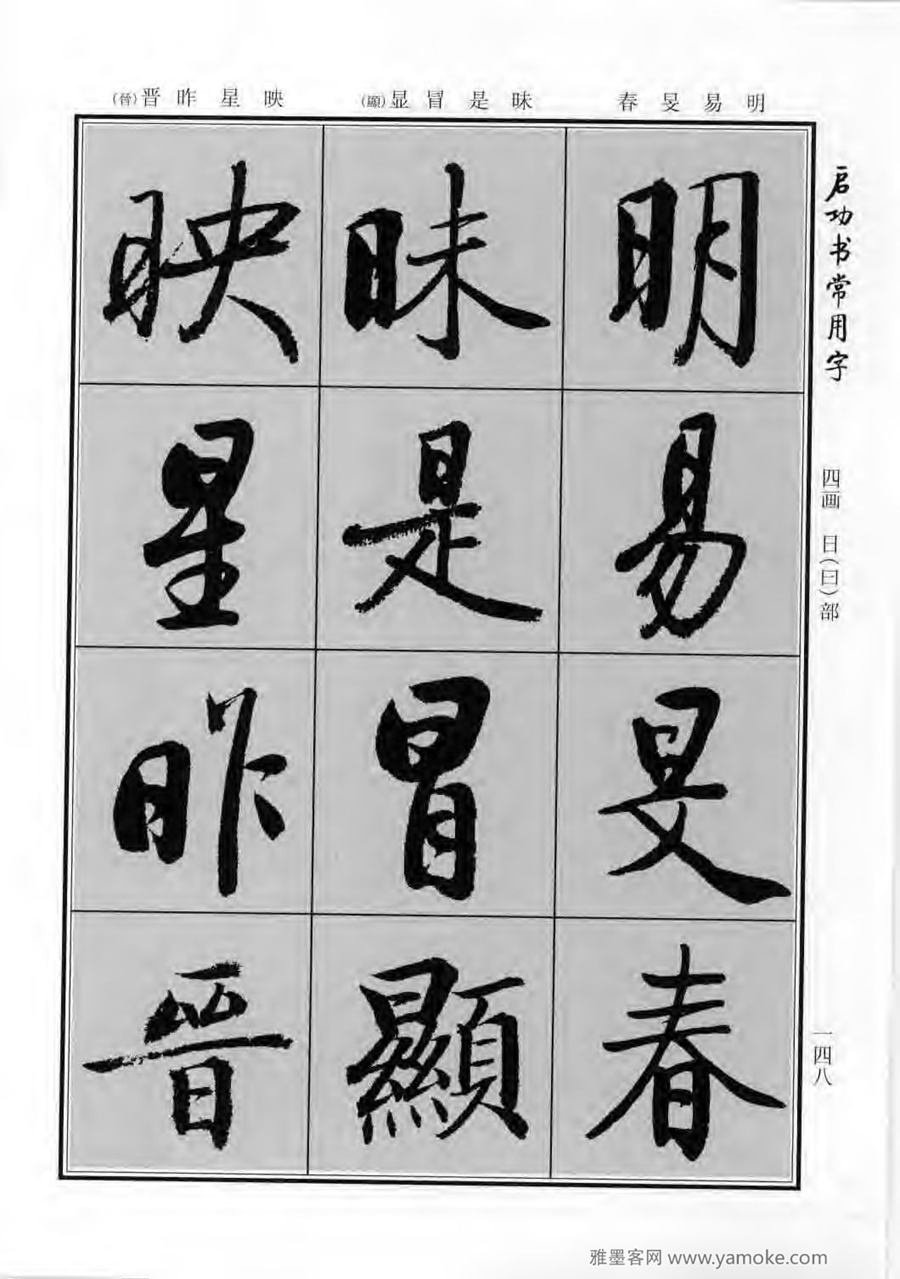 明易旻春
昧是冒显(顯)
映星昨晋(晉)
启功书常用字
四画 日(曰)部
明
易
旻
春
昧
是
冒
顯
映
星
昨
晋
一四八
雅墨客网 www.yamoke.com